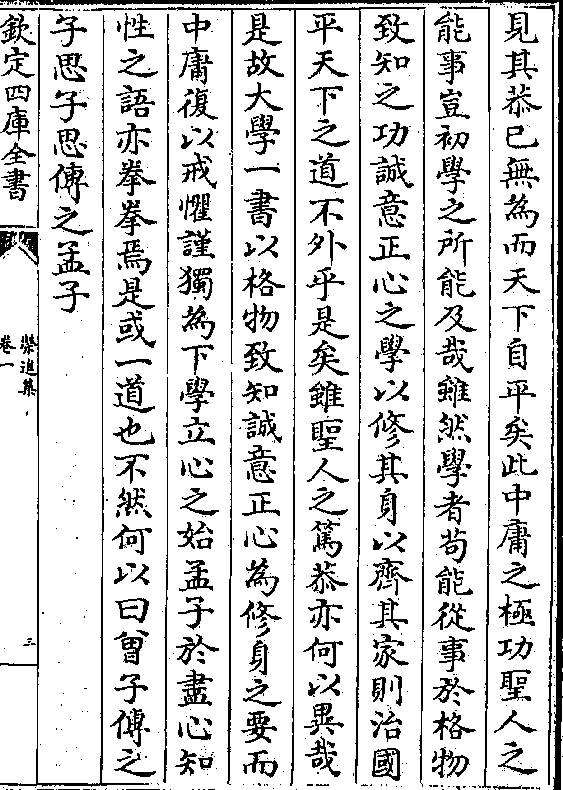 見其恭已無為而天下自平矣此中庸之極功聖人之
能事豈初學之所能及哉雖然學者苟能從事於格物
致知之功誠意正心之學以修其身以齊其家則治國
平天下之道不外乎是矣雖聖人之篤恭亦何以異哉
是故大學一書以格物致知誠意正心為修身之要而
中庸復以戒懼謹獨為下學立心之始孟子於盡心知
性之語亦拳拳焉是或一道也不然何以曰曾子傳之
子思子思傳之孟子
欽定四庫全書
榮進集
卷一
三